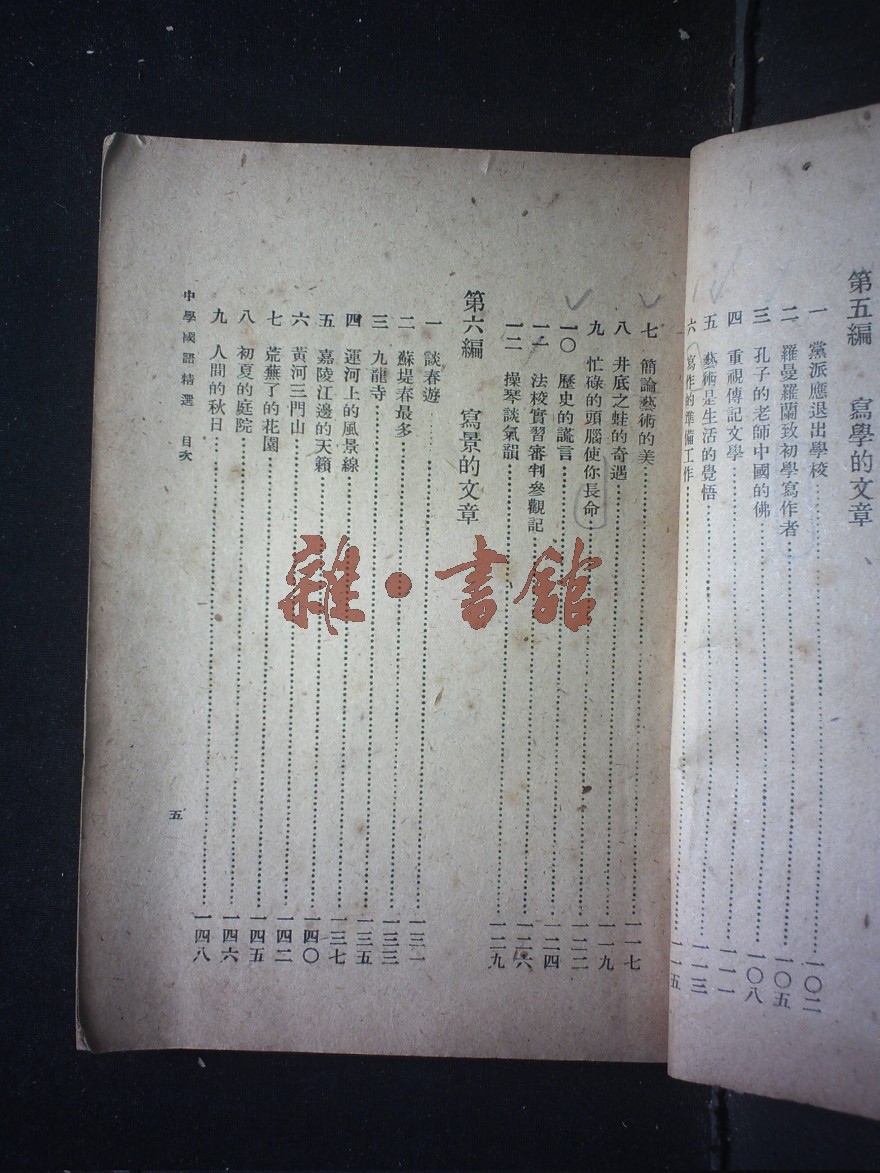 第五編　寫學的文章
一　黨派應退出學校……一〇二
二　羅曼羅蘭致初學寫作者……一〇五
三　孔子的老師中國的佛……一〇八
四　重視傳記文學……一一一
五　藝術是生活的覺悟……一一三
六　寫作的準備工作……一一五
七　簡論藝術的美……一一七
八　井底之蛙的奇遇……一一九
九　忙碌的頭腦使你長命……一二二
一〇　歷史的謊言……一二四
一一　法校實習審判參觀記……一二六
一二　操琴談氣韻……一二九
第六編　寫景的文章
一　談春遊……一三一
二　蘇堤春最多……一三三
三　九龍寺……一三五
四　運河上的風景線……一三七
五　嘉陵江邊的天籟……一四〇
六　黃河三門山……一四二
七　荒蕪了的花園……一四五
八　初夏的庭院……一四六
九　人間的秋日……一四八
中學國語精選　目次
五
雜·書館